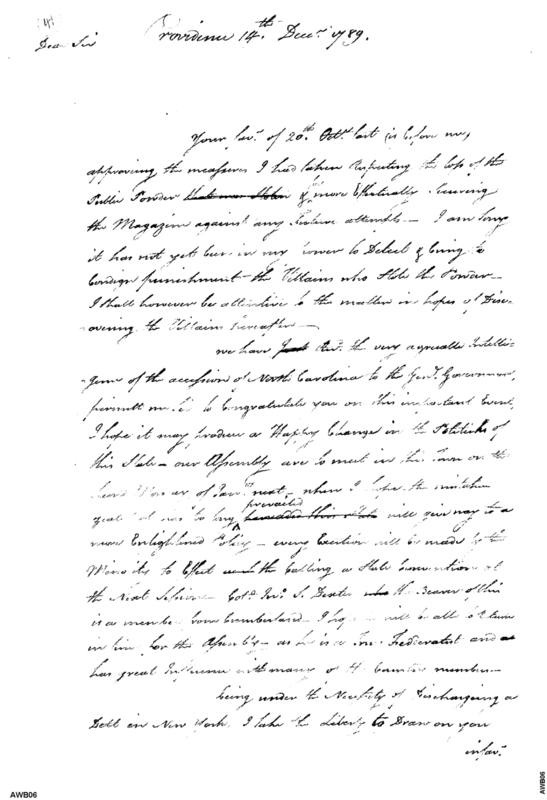 Providence 14th Decr 1789.
Dear Sir
Your favr of 20th Octr last is before me,
approving the measures I had taken Respecting the loss of the
Public Powder & more Effectually Securing
the Magazine against any future attempts — I am sorry
it has not yet been in my power to Detect & bring to
Condign punishment the Villains who Stole the Powder —
I shall however be attentive to the matter in hopes of Disc-
overing the Villains hereafter —
we have Just Recd the very agreeable Intelli-
-gence of the accession of North Carolina to the Genl Government,
permitt me to Congratulate you on this important Event,
I hope it may produce a Happy Change in the Politicks of
this State — our Assembly are to meet in this Town on the
Second Monday of Jany next — when I hope the mistaken
prevailed
zeal too long will give way to a
more Enlightened Policy — every Exertion will be made by the
Minority to Effect the Calling a State Convention at
the Next Session — Colo S. Dexter the Bearer of this
is a member from Cumberland — I hope will be able to
in him for the Assembly — as he is a Federalist and
has great Influence with many of the Country members —
being under the Necessity of Discharging a
Debt in New York, I take the Liberty to Draw on you
in favr
AWB06
AWB06